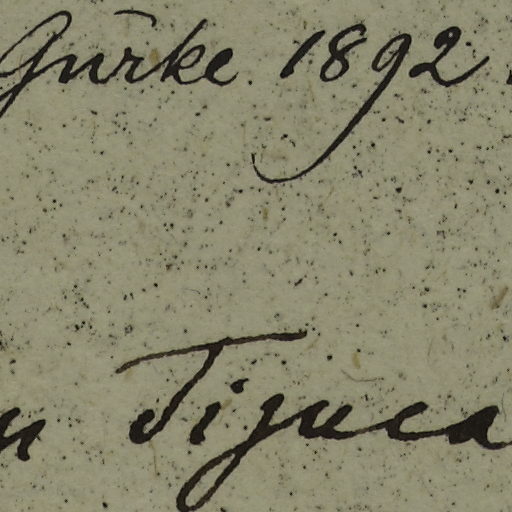 Gürke. 1892.
Tijuca